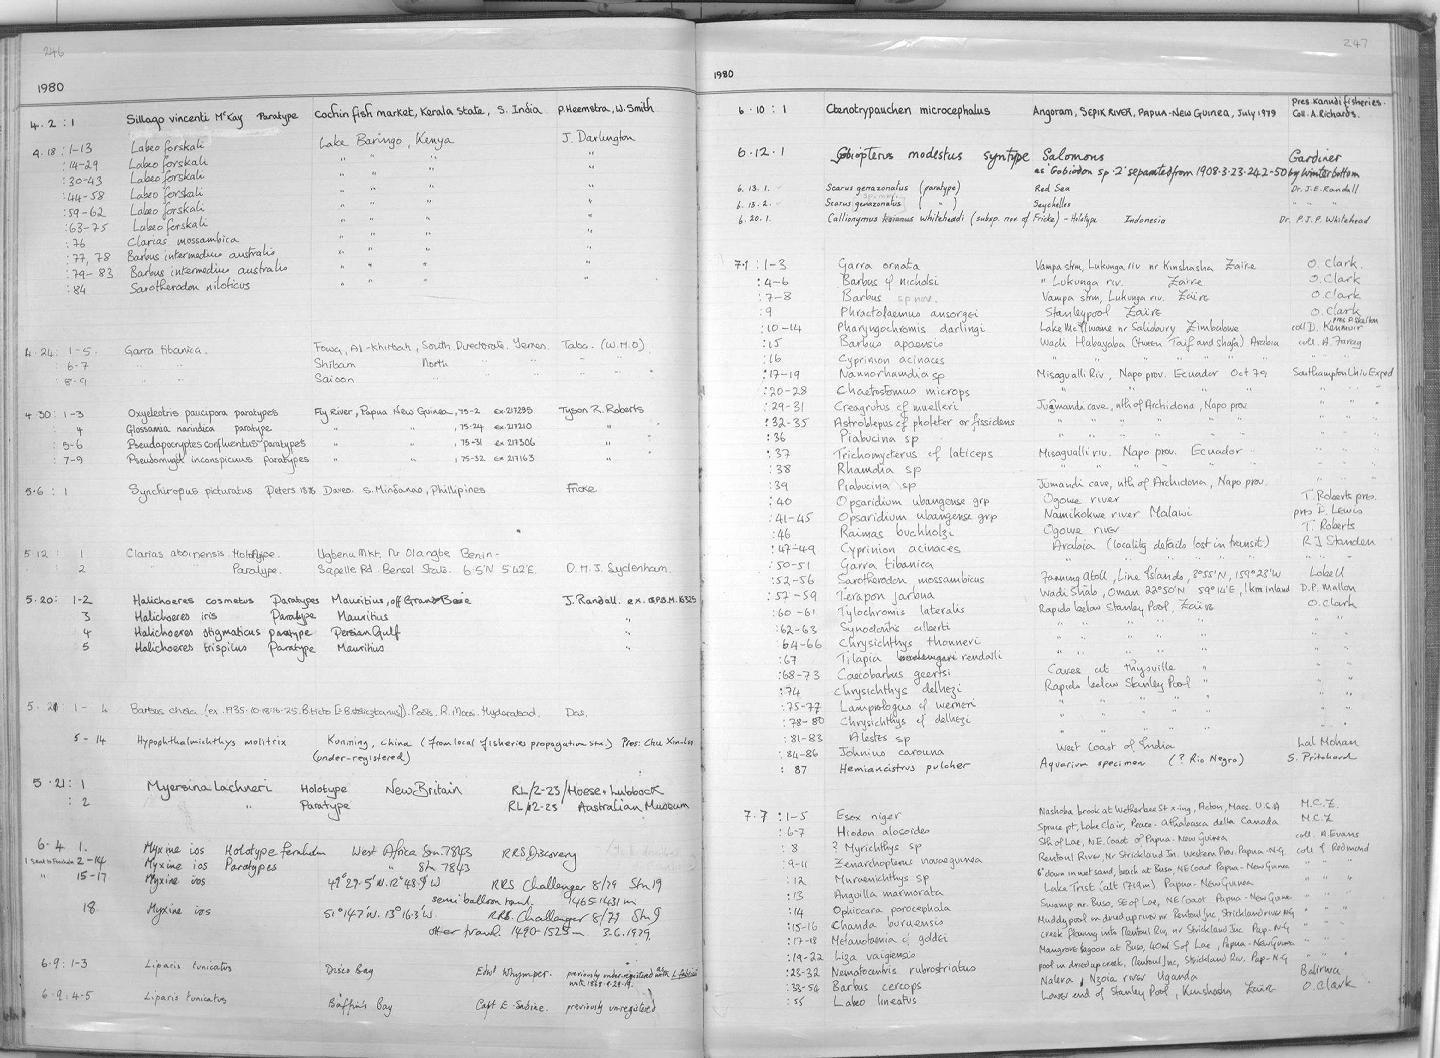 246
1980
4.2:1 Sillago vincenti McKay Paratype Cochin fish market, Kerala State, S. India P. Heemstra, W. Smith
4.18:1-13 Labeo forskali Lake Baringo, Kenya J. Darlington
:14-29 Labeo forskali " " "
:30-43 Labeo forskali " " "
:44-58 Labeo forskali " " "
:59-62 Labeo forskali " " "
:63-75 Labeo forskali " " "
:76 Clarias mossambica " " "
:77, 78 Barbus intermedius australis " " "
:79-83 Barbus intermedius australis " " "
:84 Sarotherodon niloticus " " "
4.24:1-5. Garra tibanica. Fowa, Al-Khirbah, South Directorate, Yemen. Tabo. (W.H.O)
6-7 " " Shibam North " " "
8-9 " " Saioon " " "
4.30:1-3 Oxyeleotris paucipora paratypes Fly River, Papua New Guinea, 75-2 ex 217295 Tyson R. Roberts
4 Glossamia narindica paratype " " , 75-24 ex 217210 "
5-6 Pseudapocryptes confluentus paratypes " " , 75-31 ex 217306 "
7-9 Pseudomugil inconspicuus paratypes " " , 75-32 ex 217163 "
5.6:1 Synchiropus picturatus Peters 1876 Davao. S. Mindanao, Phillipines Fricke
5.12:1 Clarias aboinensis Holotype. Ugbenu Mkt. Nr Olangbe Benin-
2 Paratype. Sapelle Rd. Bensol State. 6.5'N 5.42'E. D. M. J. Sydenham.
5.20:1-2 Halichoeres cosmetus Paratypes Mauritius, off Grand Baie J. Randall. ex. B.P.B.M. 16325
3 Halichoeres iris Paratype Mauritius "
4 Halichoeres stigmaticus paratype Persian Gulf
5 Halichoeres trispilus Paratype Mauritius "
5.21 1-4 Barbus chola (ex. 1935.10.18.16-25. B. ticto [= B. stoliczkanus]). Pools. R. Moosi. Hyderabad. Das.
5-14 Hypophthalmichthys molitrix Kunming, China (from local fisheries propagation stn.) Pres: Chu Xin-Luo
(under-registered)
5.21:1 Myersina lachneri Holotype New Britain RL/2-23/Hoese + Lubbock
:2 " Paratype RL/2-23 Australian Museum
6.4 1. Myxine ios Holotype female West Africa Stn. 7843 RRS Discovery
2-14 Myxine ios Paratypes " Stn 7843
" 15-17 Myxine ios 49°29.5'N. 12°48.9'W RRS Challenger 8/79 Stn 19
semi balloon trawl. 1465-1431 m
18 Myxine ios 51°14.7'N. 13°16.3'W. RRS. Challenger 8/79 Stn 9
otter trawl. 1490-1525 m 3.6.1979.
6.9:1-3 Liparis tunicatus Disco Bay Edwd Whymper. previously under-registered
6.9:4-5 Liparis tunicatus Baffin's Bay Capt E. Sabine. previously unregistered
247
1980
6.10:1 Ctenotrypauchen microcephalus Angoram, SEPIK RIVER, PAPUA-NEW GUINEA, July 1979 Pres. Kanudi fisheries.
Coll. A. Richards.
6.12.1 Gobiopterus modestus syntype Solomons Gardiner
as 'Gobiodon sp. 2' separated from 1908.3.23.242-50 by Winterbottom
6.13.1. Scarus genazonatus (paratype) Red Sea Dr. J.E. Randall
6.13.2. Scarus genazonatus ( " ) Seychelles " " "
6.20.1. Callionymus whiteheadi (subsp. nov. of Fricke) - Holotype Indonesia Dr. P.J.P. Whitehead
7.1:1-3 Garra ornata Vampa strm, Lukunga riv nr Kinshasha Zaire O. Clark.
:4-6 Barbus cf nicholsi " Lukunga riv. Zaire O. Clark
:7-8 Barbus sp nov. Vampa strm, Lukunga riv. Zaire O. Clark
:9 Phractolaemus ansorgei Stanleypool Zaire O. Clark
:10-14 Pharyngochromis darlingi Lake McIlwaine nr Salisbury Zimbabwe coll D. Kenmuir pres P. Skelton
:15 Barbus apoensis Wadi Habayaba (tween Taif and Shafa) Arabia coll. A. Farag
:16 Cyprinion acinaces " " " " " "
:17-19 Nannorhamdia sp Misagualli Riv, Napo prov. Ecuador Oct 79 Southampton Univ Exped
:20-28 Chaetostomus microps " " " " "
:29-31 Creagrutus cf muelleri Jumandi cave, nth of Archidona, Napo prov " "
:32-35 Astroblepus cf pholeter or fissidens " " " "
:36 Piabucina sp " " " "
:37 Trichomycterus cf laticeps Misagualli riv. Napo prov. Ecuador " "
:38 Rhamdia sp " " " "
:39 Piabucina sp Jumandi cave, nth of Archidona, Napo prov. " "
:40 Opsaridium ubangense grp Ogowe river T. Roberts pres.
:41-45 Opsaridium ubangense grp Namikokwe river Malawi pres D. Lewis
:46 Raimas buchholzi Ogowe river T. Roberts
:47-49 Cyprinion acinaces Arabia (locality details lost in transit) R J Standen
:50-51 Garra tibanica " " " " " "
:52-56 Sarotherodon mossambicus Fanning Atoll, Line Islands, 3°55'N, 159°23'W Lobell
:57-59 Terapon jarbua Wadi Shab, Oman 22°50'N 59°14'E, 1km inland D.P. Mallon
:60-61 Tylochromis lateralis Rapids below Stanley Pool, Zaire O. Clark
:62-63 Synodontis alberti " " " " "
:64-66 Chrysichthys thonneri " " " " "
:67 Tilapia rendalli " " " " "
:68-73 Caecobarbus geertsi Caves at Thysville " "
:74 Chrysichthys delhezi Rapids below Stanley Pool " "
:75-77 Lamprologus cf werneri " " " " "
:78-80 Chrysichthys cf delhezi " " " " "
:81-83 Alestes sp " " " " "
:84-86 Johnius carouna West Coast of India Lal Mohan
:87 Hemiancistrus pulcher Aquarium specimen (? Rio Negro) S. Pritchard
7.7:1-5 Esox niger Nashoba brook at Wetherbee St x-ing, Acton, Mass. U.S.A M.C.Z.
:6-7 Hiodon alosoides Spruce pt, Lake Clair, Peace-Athabasca delta Canada M.C.Z
:8 ? Myrichthys sp Sth of Lae, N.E. Coast of Papua-New Guinea coll. A. Evans
:9-11 Zenarchopterus novaeguinea Rentoul River, Nr Strickland Inc. Western Prov. Papua-N.G. coll. R Redmond
:12 Muraenichthys sp 6" down in wet sand, beach at Buso, NE Coast Papua-New Guinea " "
:13 Anguilla marmorata Lake Trist (alt 1719m) Papua-New Guinea " "
:14 Ophiocara porocephala Swamp nr. Buso, SE of Lae, NE Coast Papua-New Guinea " "
:15-16 Chanda buruensis Muddy pool in dried up river nr Rentoul Inc, Strickland river N.G. " "
:17-18 Melanotaenia cf goldiei creek flowing into Rentoul Riv, nr Strickland Inc Pap-N.G " "
:19-22 Liza vaigiensis Mangrove lagoon at Buso, 40ml S of Lae, Papua-New Guinea " "
:23-32 Nematocentris rubrostriatus pool in dried up creek, Rentoul Inc, Strickland Riv. Pap-N.G " "
:33-54 Barbus cercops Nalera, Nzoia river Uganda Balirwa
:55 Labeo lineatus Lower end of Stanley Pool, Kinshasha Zaire O. Clark